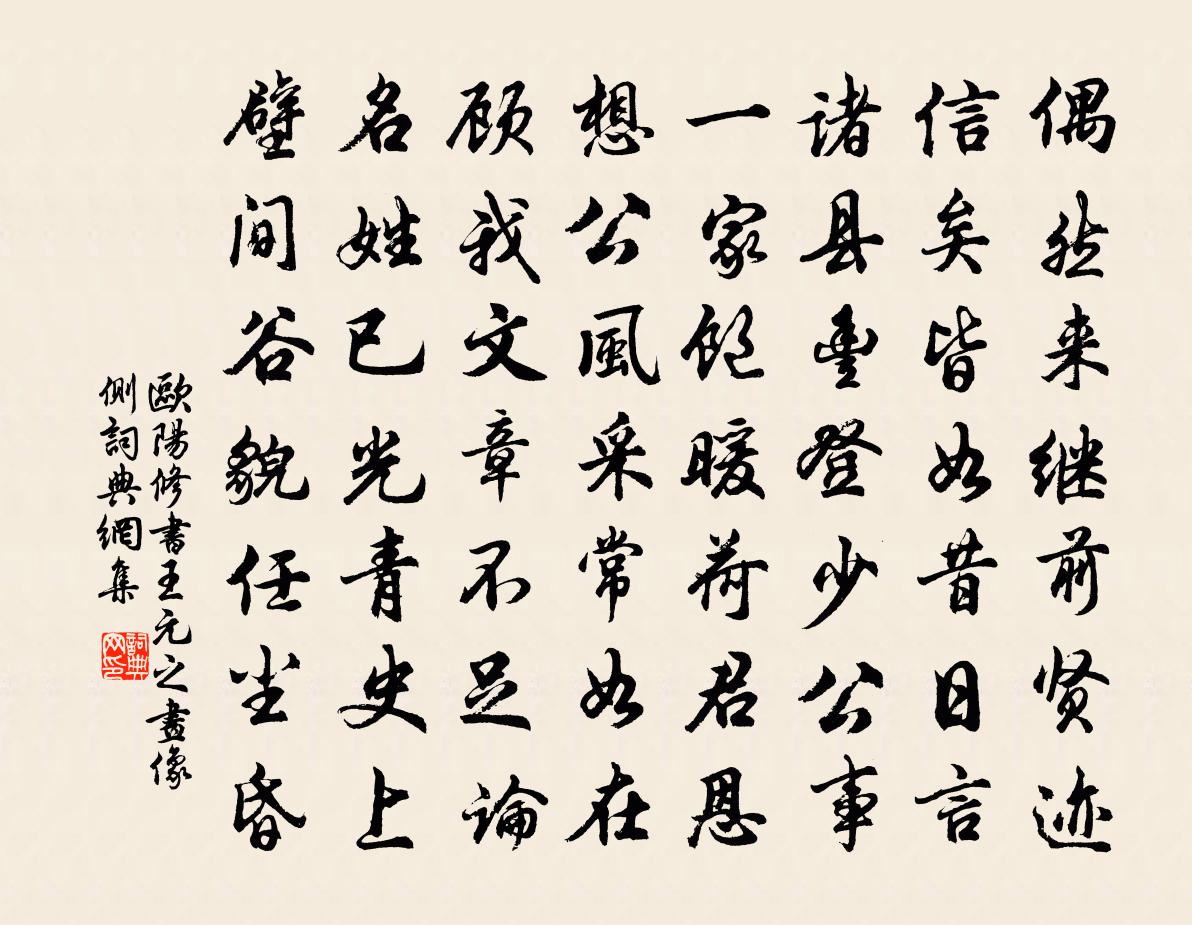 偶然来继前贤迹
信矣皆如昔日言
诸县豐登少公事
一家饱暖荷君恩
想公風采常如在
顾我文章不足論
名姓已光青史上
壁间谷貌任尘昏
歐陽修書王元之畫像
側詞典網集
詞典
网印